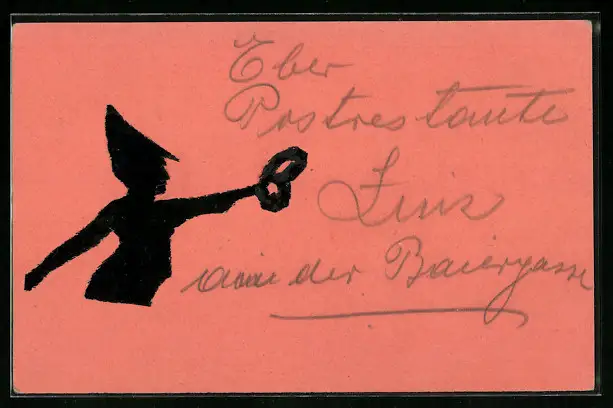 Eber
Postrestante
Linz
in der Baiergasse